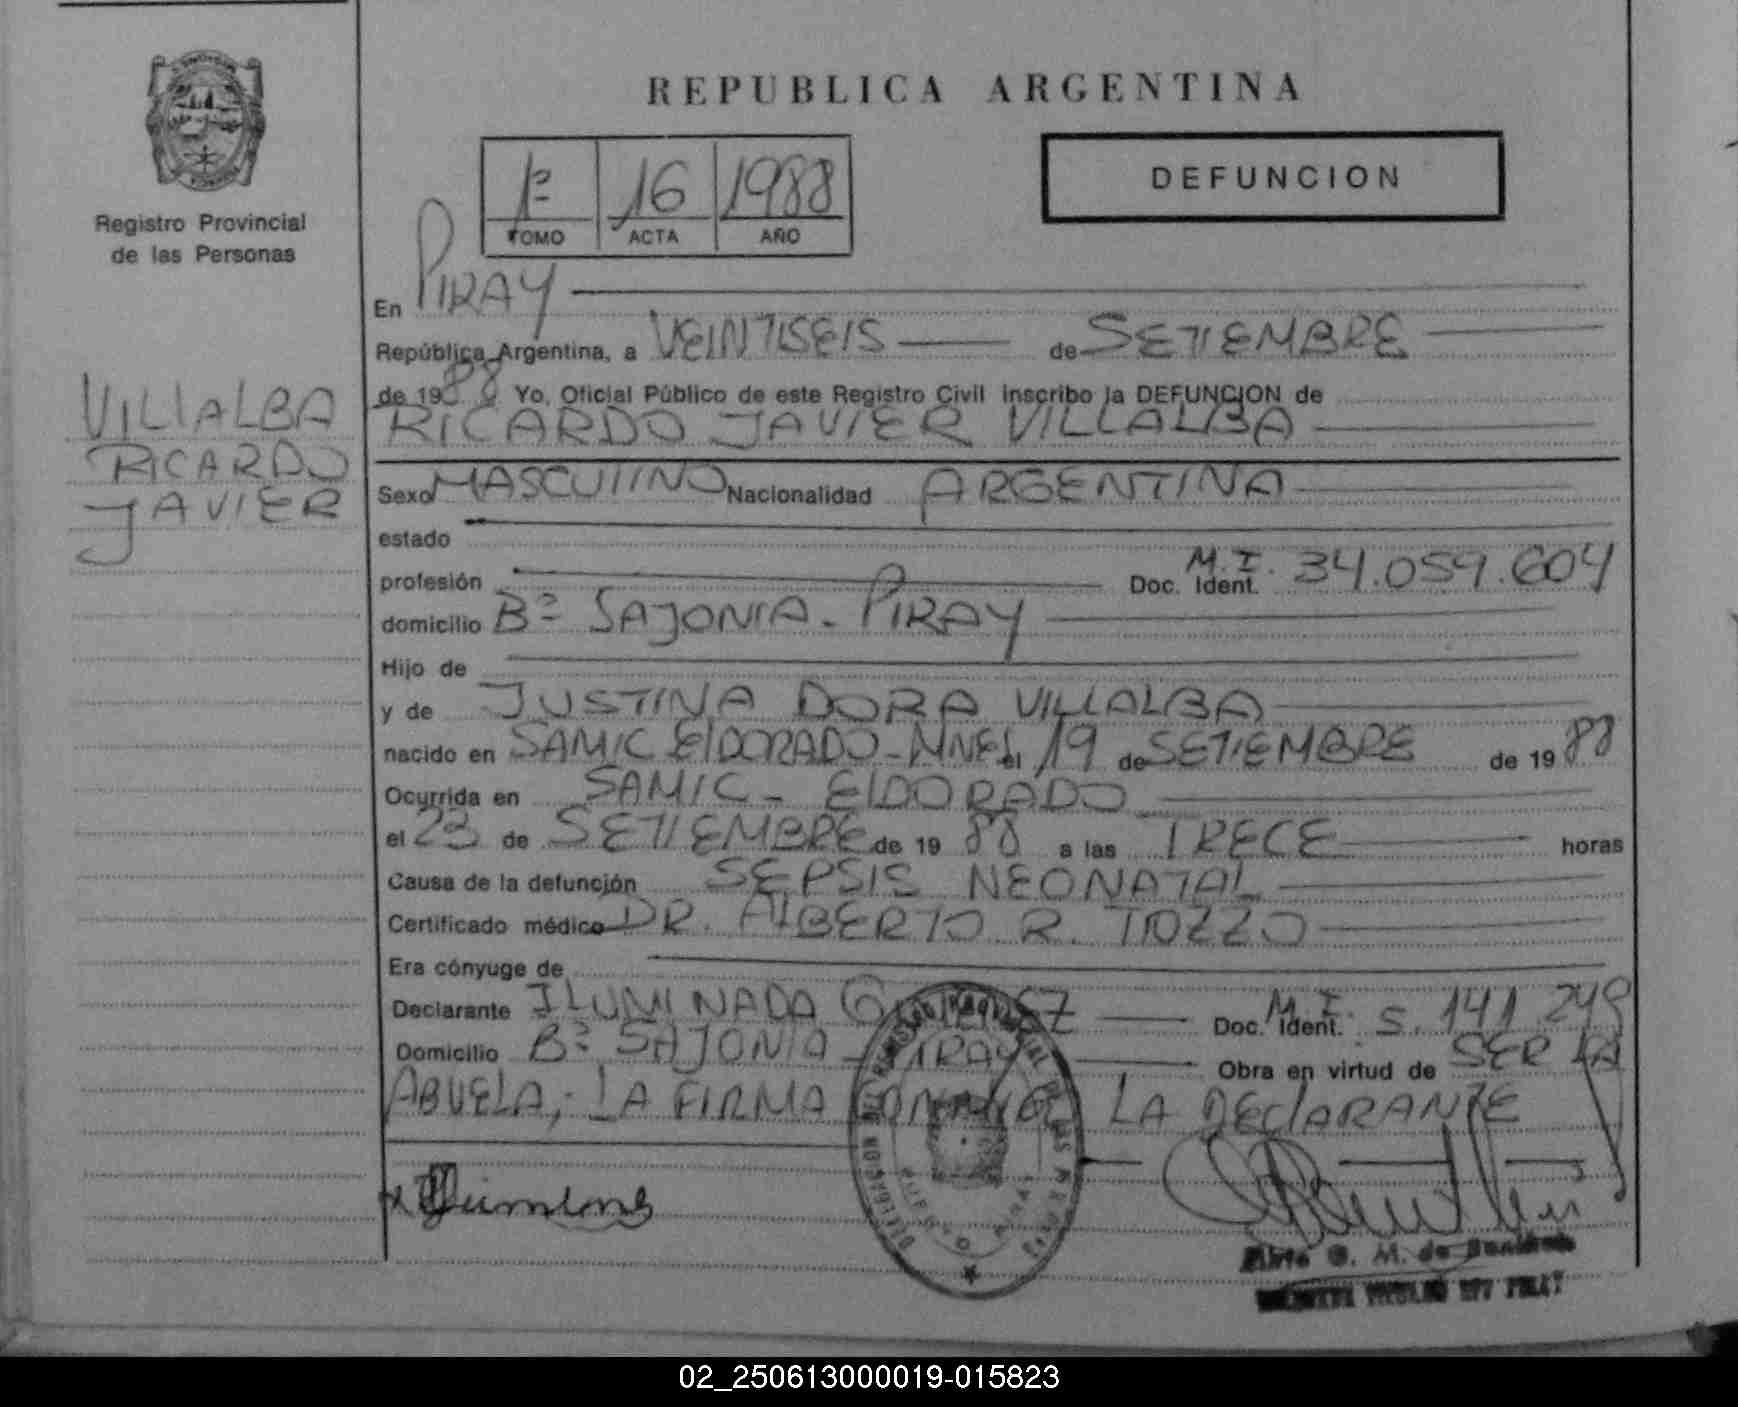 REPUBLICA ARGENTINA
DEFUNCION
1º 16 1988
TOMO ACTA AÑO
Registro Provincial
de las Personas
VILLALBA
RICARDO
JAVIER
En PIRAY
República Argentina, a VEINTISEIS de SETIEMBRE
de 1988 Yo, Oficial Público de este Registro Civil inscribo la DEFUNCION de
RICARDO JAVIER VILLALBA
Sexo MASCULINO Nacionalidad ARGENTINA
estado
profesión Doc. Ident. M.I. 34.059.604
domicilio Bº SAJONIA - PIRAY
Hijo de
y de JUSTINA DORA VILLALBA
nacido en SAMIC ELDORADO - MNES el 19 de SETIEMBRE de 1988
Ocurrida en SAMIC - ELDORADO
el 23 de SETIEMBRE de 1988 a las TRECE horas
Causa de la defunción SEPSIS NEONATAL
Certificado médico DR. ALBERTO R. TIOZZO
Era cónyuge de
Declarante ILUMINADA Doc. Ident. M.I. 5.141.249
Domicilio Bº SAJONIA - PIRAY Obra en virtud de SER LA
ABUELA; LA FIRMA LA DECLARANTE
02_250613000019-015823